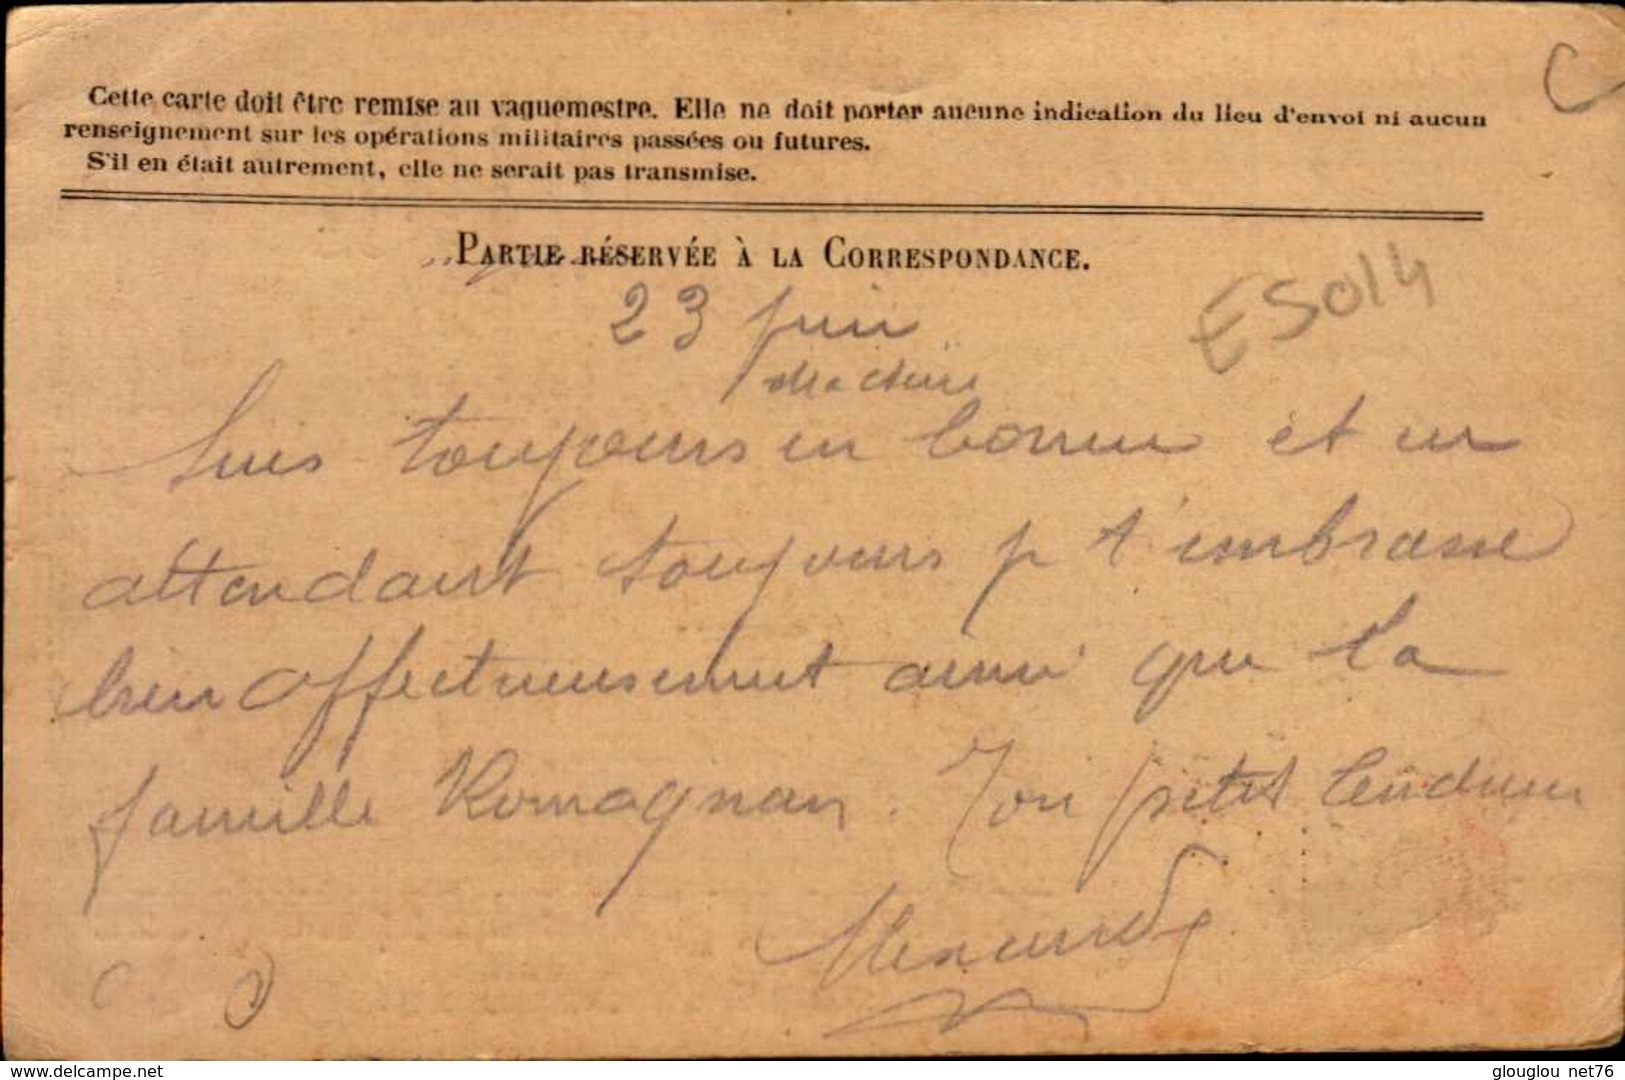 Cette carte doit être remise au vaguemestre. Elle ne doit porter aucune indication du lieu d'envoi ni aucun
renseignement sur les opérations militaires passées ou futures.
S'il en était autrement, elle ne serait pas transmise.
PARTIE RÉSERVÉE À LA CORRESPONDANCE.
23 juin
E5014
C
Suis toujours en bonne et en
attendant toujours p t'embrasse
bien affectueusement ainsi que la
famille Romagnan. Ton petit
Alexandre
delcampe.net
glouglou_net76